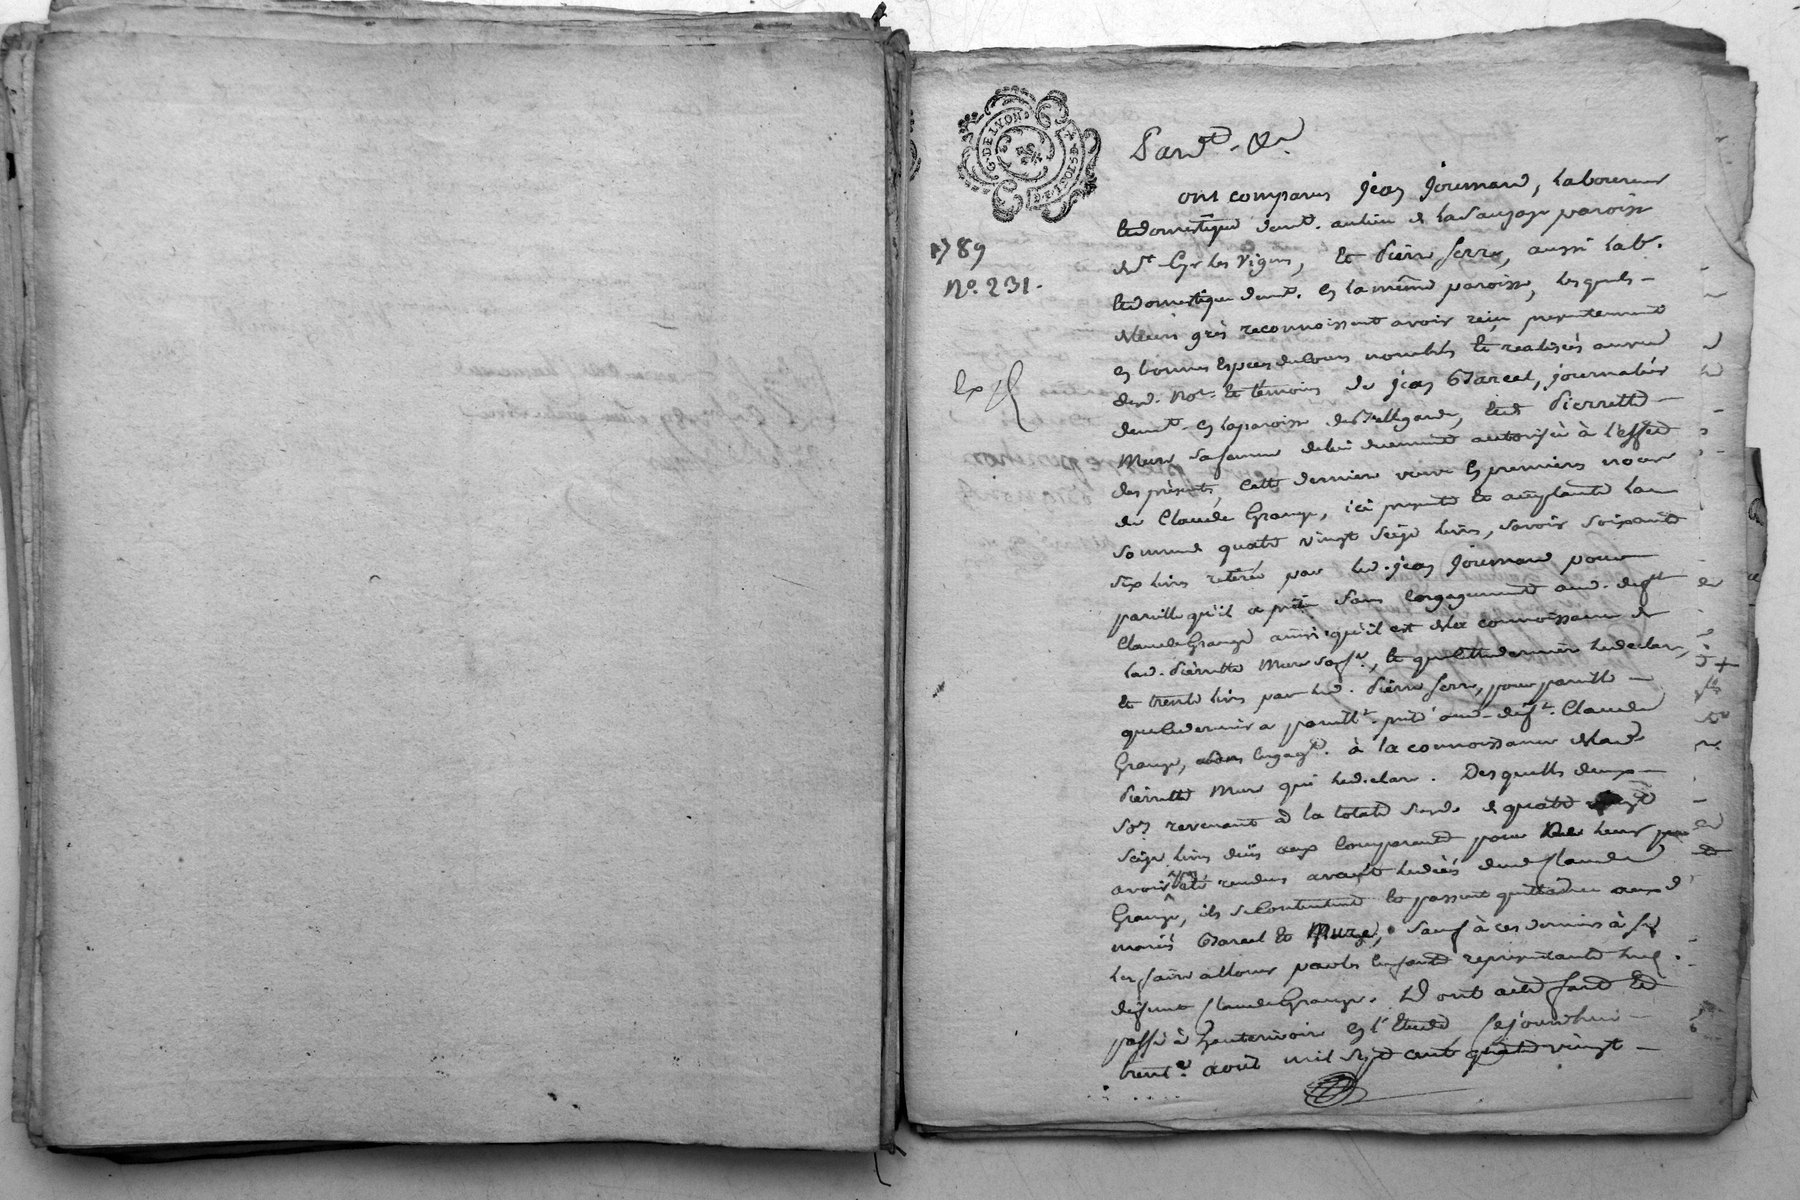 G. DE LYON
Pard.t &a.
1789
N.o 231.
ont comparus jean joiernard, laboureur
et domestique dem.t au lieu de la Sauzaye paroisse
de S.t Cyr les Vignes, et Pierre ferre, aussi lab.r
et domestique dem.t en la même paroisse, lesquels
de leurs grés reconnoissent avoir reçu presentement
en bonnes Especes du Cours nombrés et realisés au vu
dud. No.re et témoins de jean Barcel, journalier
dem.t en la paroisse de Bellegarde, et de Pierrette
Mure sa femme de lui duement autorisée à l'effet
des présentes, cette derniere veuve en premieres noces
de Claude Grange, ici presents et acceptants la
somme quatre vingt seize livres, savoir soixante
six livres retirée par led. jean joiernard pour
pareille qu'il a prété sans Engagement aud. deft
Claude Grange ainsi qu'il est de la connoissance de
lad. Pierrette Mure sa f.e, et que cette derniere le declare,
et trente livres par led. Pierre ferre, pour pareille
que ce dernier a pareill.t prété aud. def.t Claude
Grange, sans Engag.t à la connoissance de lad.
Pierrette Mure qui le declare. Desquelles deux
So.es revenant à la totale susd. de quatre vingt
seize livres dües aux Comparants pour leur
avoir été rendues avant le décés dud. Claude
Grange, ils se Contentent et passent quittance auxd.
mariés Barcel et Mure, sauf à ces derniers à se
les faire allouer par les Enfants représentants led.
défunt Claude Grange. Dont acte fait et
passé à hauterivoire en l'Etude cejourdhui
trent.e aout mil sept cent quatre vingt